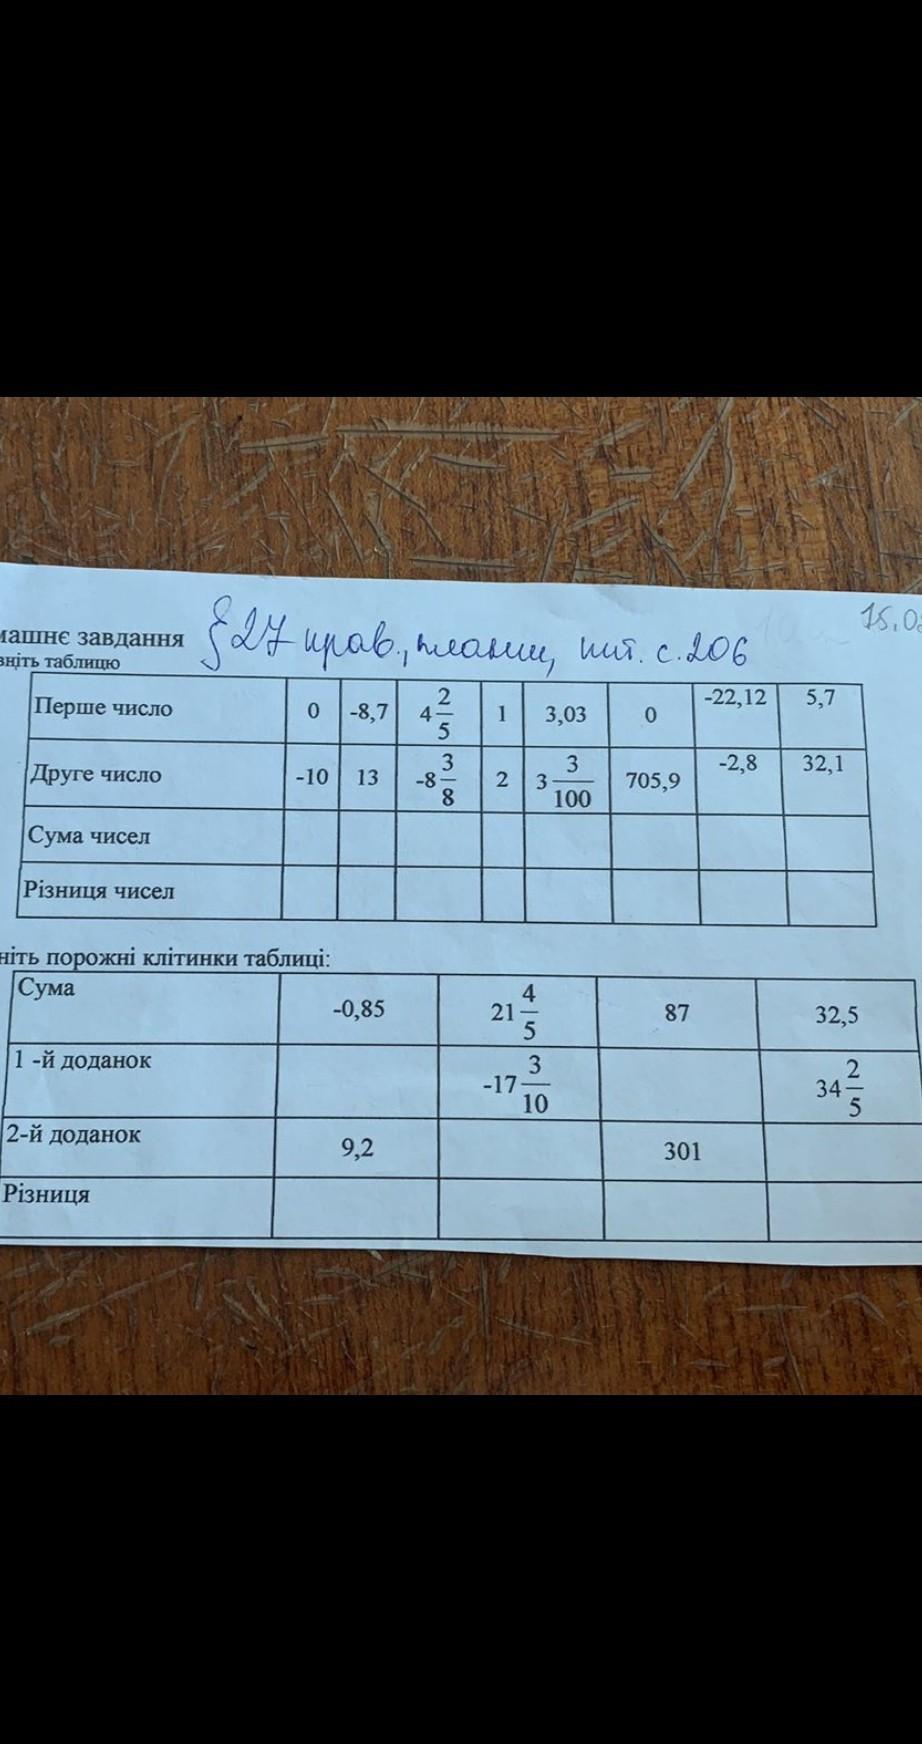 15.0
машнє завдання § 27 прав., пит. с. 206
вніть таблицю
Перше число 0 -8,7 4 2/5 1 3,03 0 -22,12 5,7
Друге число -10 13 -8 3/8 2 3 3/100 705,9 -2,8 32,1
Сума чисел
Різниця чисел
ніть порожні клітинки таблиці:
Сума -0,85 21 4/5 87 32,5
1 -й доданок -17 3/10 34 2/5
2-й доданок 9,2 301
Різниця